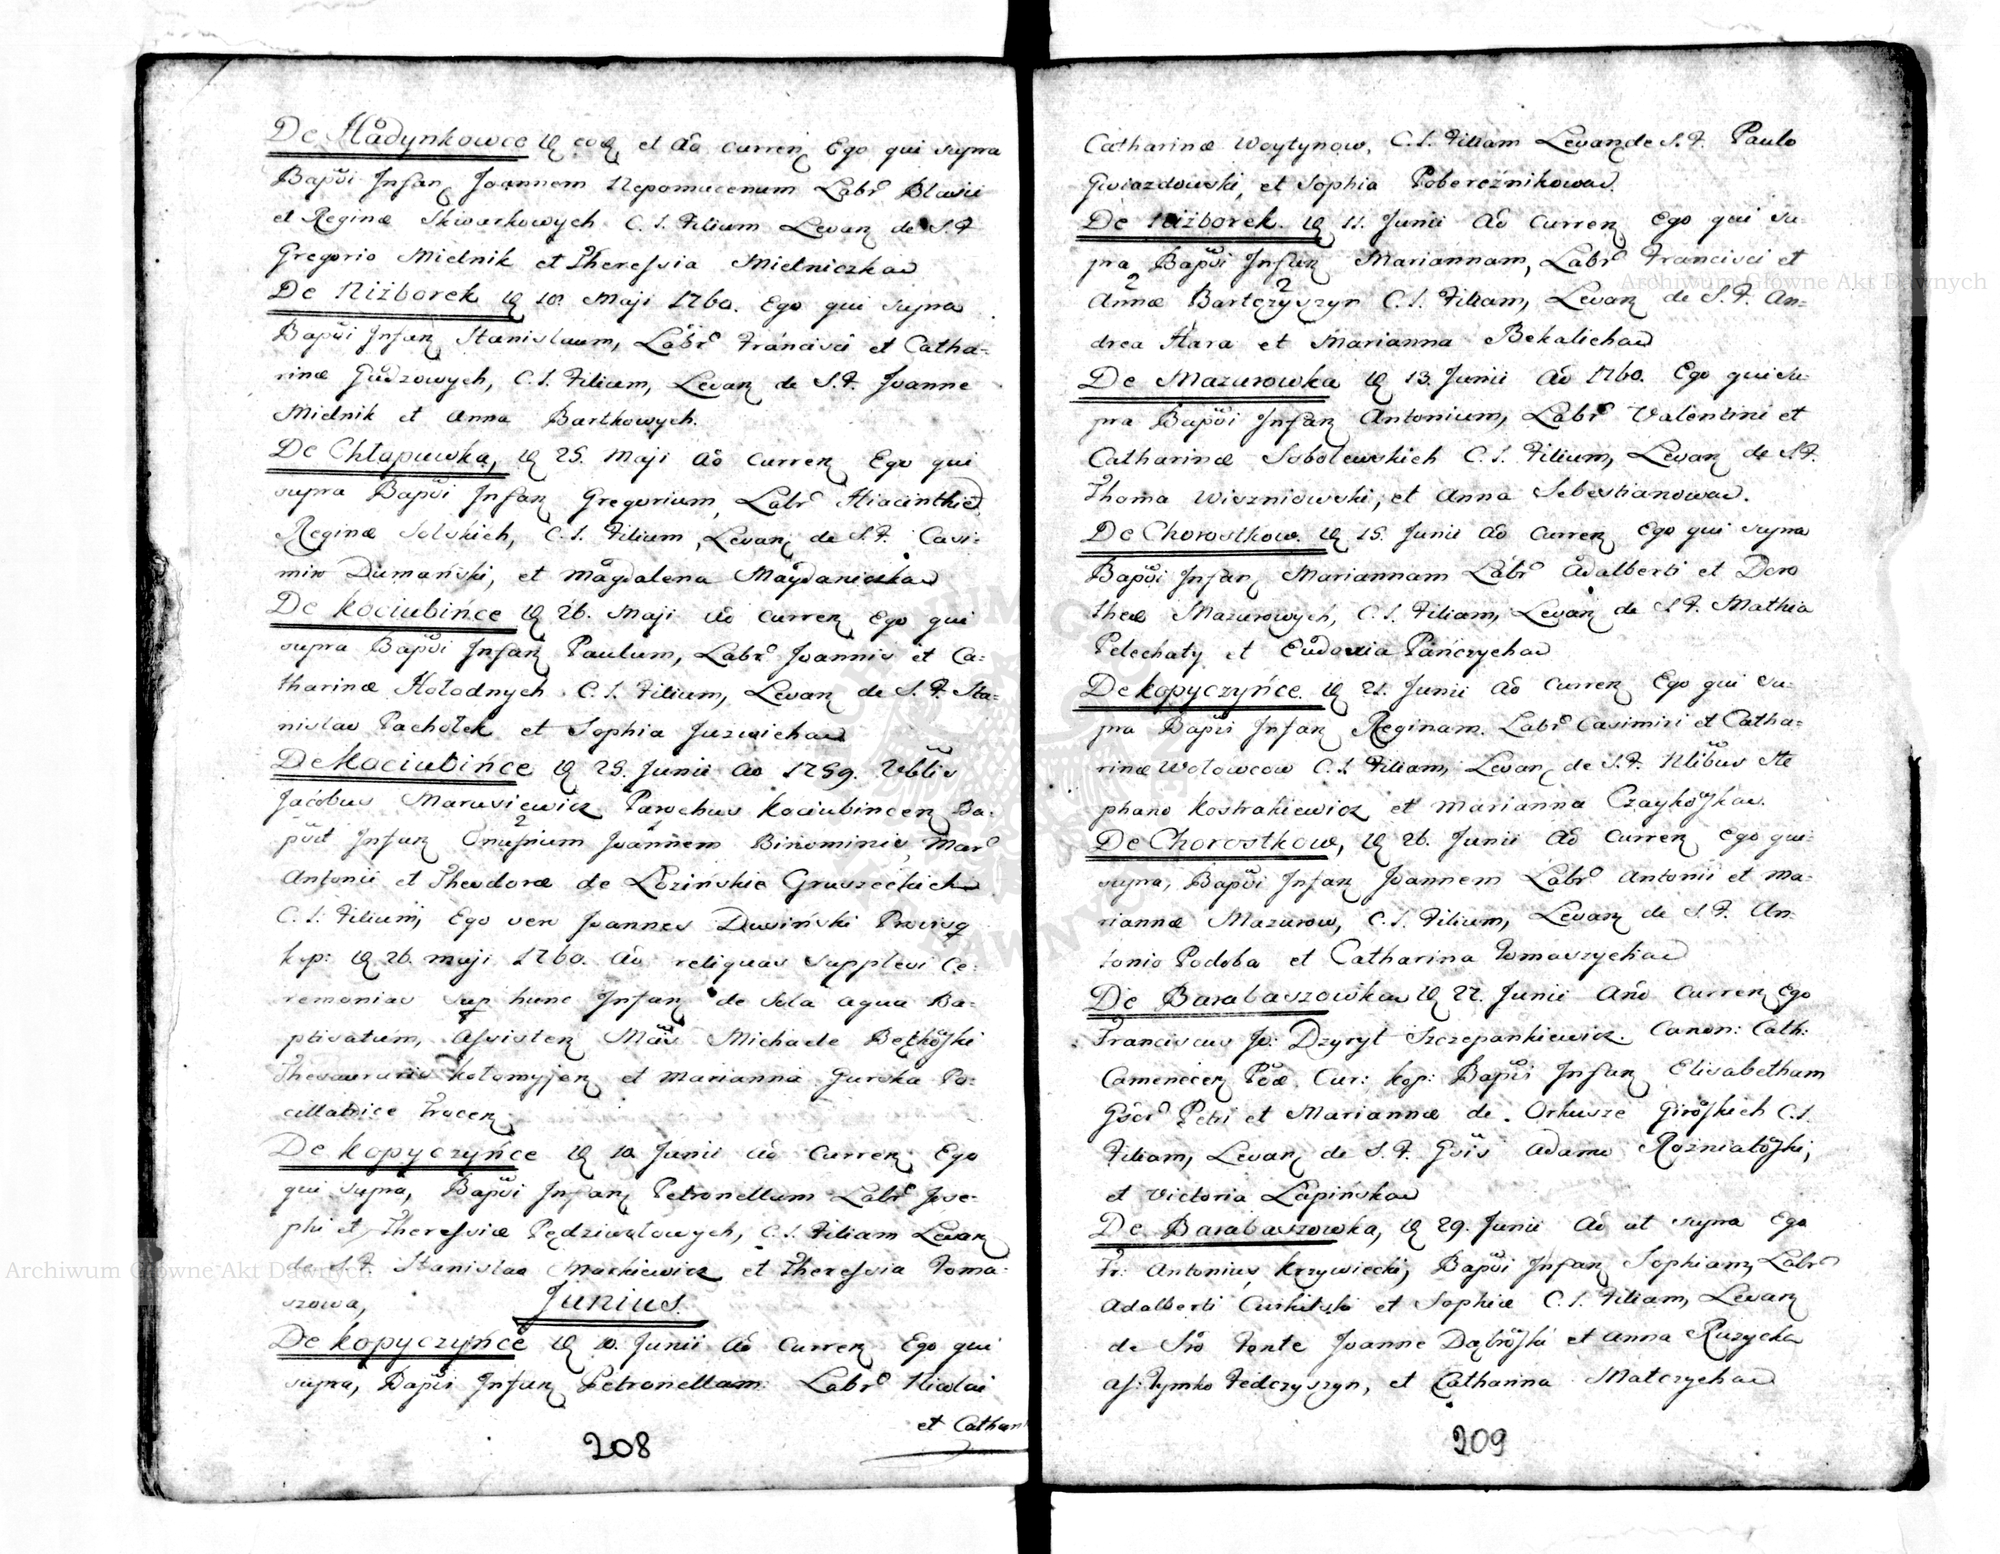 De Hadynkowce eod et Ao curren Ego qui supra
Bapvi Infan Joannem Nepomucenum Labr Blasii
et Reginæ Skwarkowych C. L. Filium Levan de S. F.
Gregorio Mielnik et Theressia Mielniczka
De Niżborek 10. Maji 1760. Ego qui supra
Bapvi Infan Stanislaum, Labr Francisci et Catha-
rinæ Gudzowych, C. L. Filium, Levan de S. F. Joanne
Mielnik et Anna Bartkowych.
De Chłapuwka, 25. Maji Ao curren Ego qui
supra Bapvi Infan Gregorium, Labr Hiacinthi et
Reginæ Solskich, C. L. Filium, Levan de S. F. Casi-
miro Dumański, et Magdalena
De Kociubińce 26. Maji Ao curren Ego qui
supra Bapvi Infan Paulum, Labr Joannis et Ca-
tharinæ Hołodnych C. L. Filium, Levan de S. F. Sta-
nislao Pachołek et Sophia Juzwicha
De Kociubińce 25. Junii Ao 1759. Vblis
Jacobus Marusiewicz Parochus Kociubincen Ba-
pvit Infan Onufrium Joannem Binominis,
Antonii et Theodoræ de Łozińskie Gruszeckich
C. L. Filium, Ego vero Joannes Dusiński
kop: 26. Maji 1760. Ao reliquas supplevi Ce-
remonias sup hunc Infan de sola aqua Ba-
ptisatum, Assisten Michaele
Thesaurario Kołomyjen et Marianna Gurska Po-
cillatrice Trocen
De Kopyczyńce 10 Junii Ao curren Ego
qui supra, Bapvi Infan Petronellam Labr Jose-
phi et Theressiæ Pędziwołowych, C. L. Filiam Levan
de S. F. Stanislao Markiewicz et Theressia Toma-
szowa,
Junius.
De Kopyczyńce 10. Junii Ao curren Ego qui
supra, Bapvi Infan Petronellam Labr Nicolai
et Cathari
208
Catharinæ Woytynow, C. L. Filiam Levan de S. F. Paulo
Gwiazdowski, et Sophia Pobereźnikowa.
De Niżborek 11. Junii Ao curren Ego qui su-
pra Bapvi Infan Mariannam, Labr Francisci et
Annæ Bartczyszyn C. L. Filiam, Levan de S. F. An-
drea Hara et Marianna Bekalicha
De Mazurowka 13. Junii Ao 1760. Ego qui su-
pra Bapvi Infan Antonium, Labr Valentini et
Catharinæ Sobolewskich C. L. Filium, Levan de S. F.
Thoma Wiszniowski, et Anna Sebestianowa.
De Chorostkow. 15. Junii Ao curren Ego qui supra
Bapvi Infan Mariannam Labr Adalberti et Doro
theæ Mazurowych, C. L. Filiam, Levan de S. F. Mathia
Pelechaty et Eudoxia Pańczycha
De Kopyczyńce 21. Junii Ao curren Ego qui su-
pra Bapvi Infan Reginam. Labr Casimiri et Catha-
rinæ Wołowcow C. L. Filiam, Levan de S. F. Nlibus Ste
phano Kostrakiewicz et Marianna
De Chorostkow, 26. Junii Ao curren Ego qui
supra, Bapvi Infan Joannem Labr Antonii et Ma-
riannæ Mazurow, C. L. Filium, Levan de S. F. An-
tonio Podoba et Catharina Tomaszycha
De Barabaszowka 27. Junii Ano curren Ego
Franciscus Dzyryt Szczepankiewicz. Canon: Cath:
Camenecen Cur: kop: Bapvi Infan Elisabetham
Petri et Mariannæ de Orkusze C. L.
Filiam, Levan de S. F. Adamo
et Victoria Łapińska
De Barabaszowka, 29. Junii Ao ut supra Ego
Fr: Antonius Krzywiecki, Bapvi Infan Sophiam, Labr
Adalberti et Sophiæ C. L. Filiam, Levan
de Sro Fonte Joanne et Anna Ruzycka
As: Tymko Fedczyszyn, et Catharina Matczycha
209
Archiwum Główne Akt Dawnych
Archiwum Główne Akt Dawnych